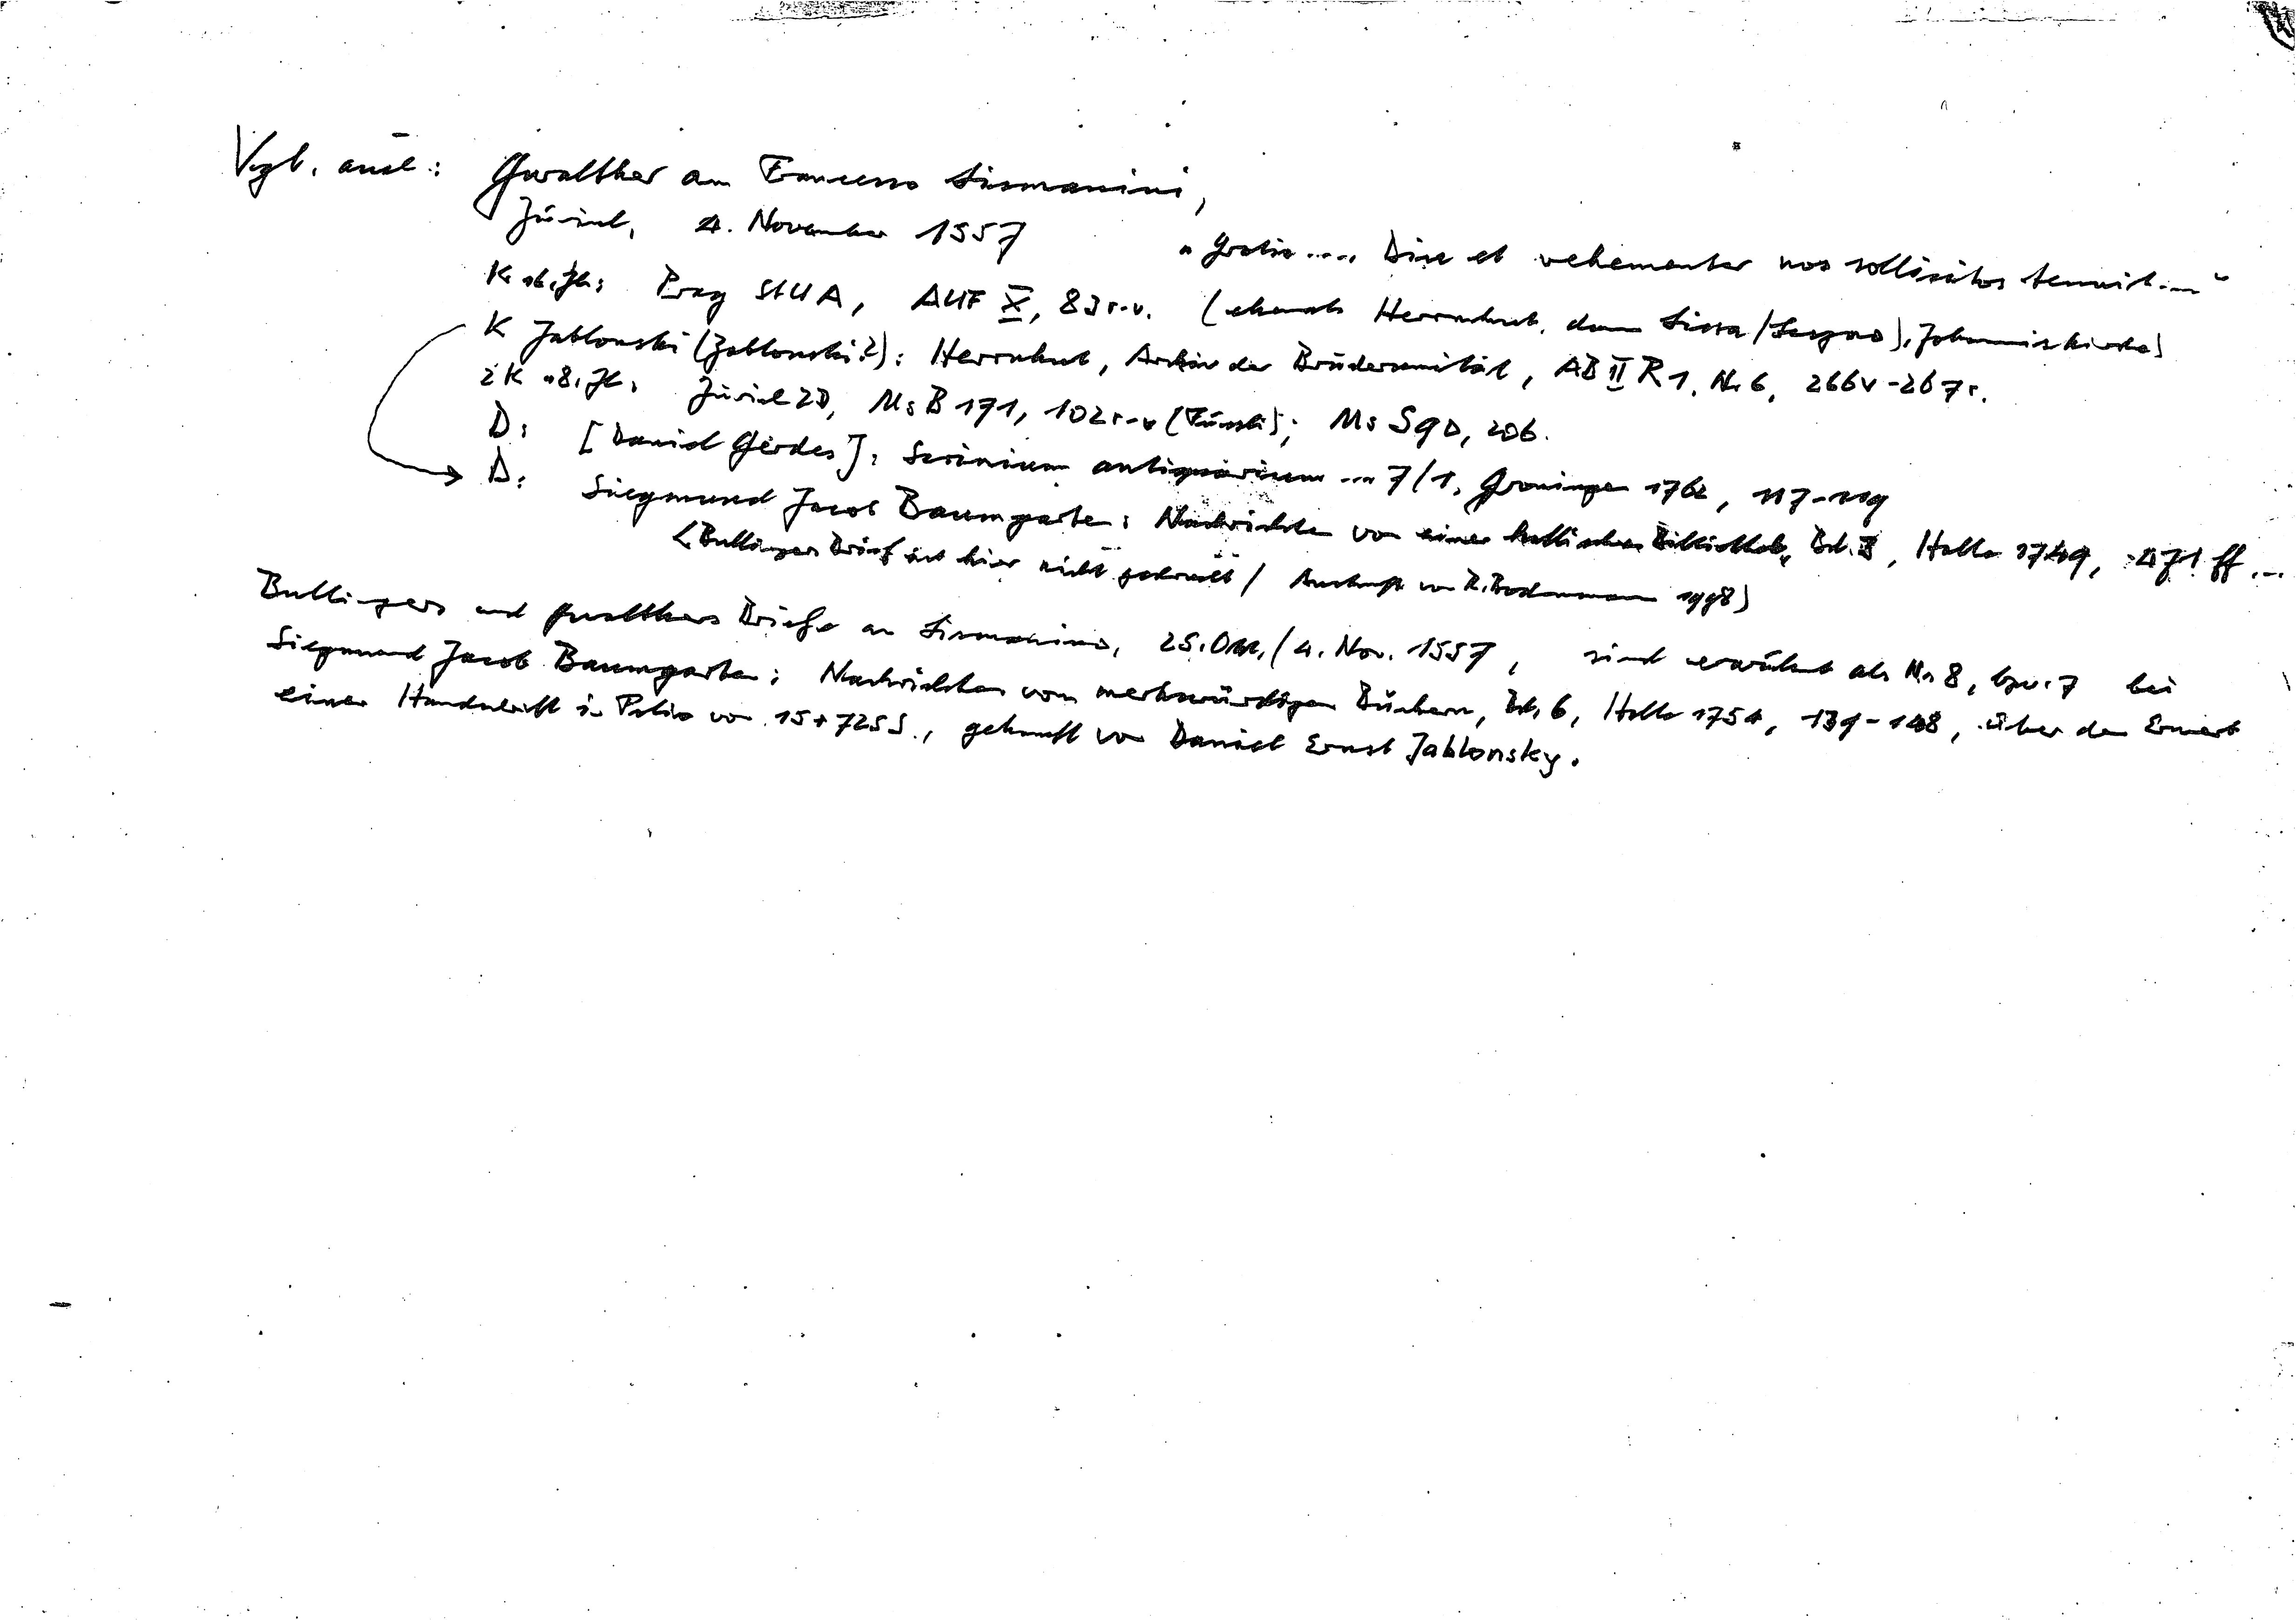 Vgl. auch: Gwalther an Francesco Lismanini,
Zürich, 4. November 1557 "Gratia.... Diu et vehementer nos sollicitos tenuit..."
K 16. Jh.: Prag StUA, AUF X, 83r.-v. (ehemals Herrnhut, dann Lissa/Leszno), Johanniskirche)
K Jablonski (Zablonski?): Herrnhut, Archiv der Brüderunität, AB II R 1, Nr. 6, 266v-267r.
2 K 18. Jh.: Zürich ZB, Ms B 171, 102r.-v (Füssli); Ms S 90, 206.
D: [Daniel Gerdes]: Scrinium antiquarium ... 7/1, Groningen 1762, 117-119
D: Siegmund Jacob Baumgarten: Nachrichten von einer hallischen Bibliothek, Bd. 3, Halle 1749, 471 ff...
(Bullinger Brief ist hier nicht gedruckt / Auskunft von R. Bodenmann 1998)
Bullingers und Gwalthers Briefe an Lismanino, 25. Okt./4. Nov. 1557, sind erwähnt als Nr. 8, bzw. 7 bei
Siegmund Jacob Baumgarten: Nachrichten von merkwürdigen Büchern, Bd. 6, Halle 1754, 139-148, über den Erwerb
einer Handschrift in Folio von 15+725 S., gekauft von Daniel Ernst Jablonsky.